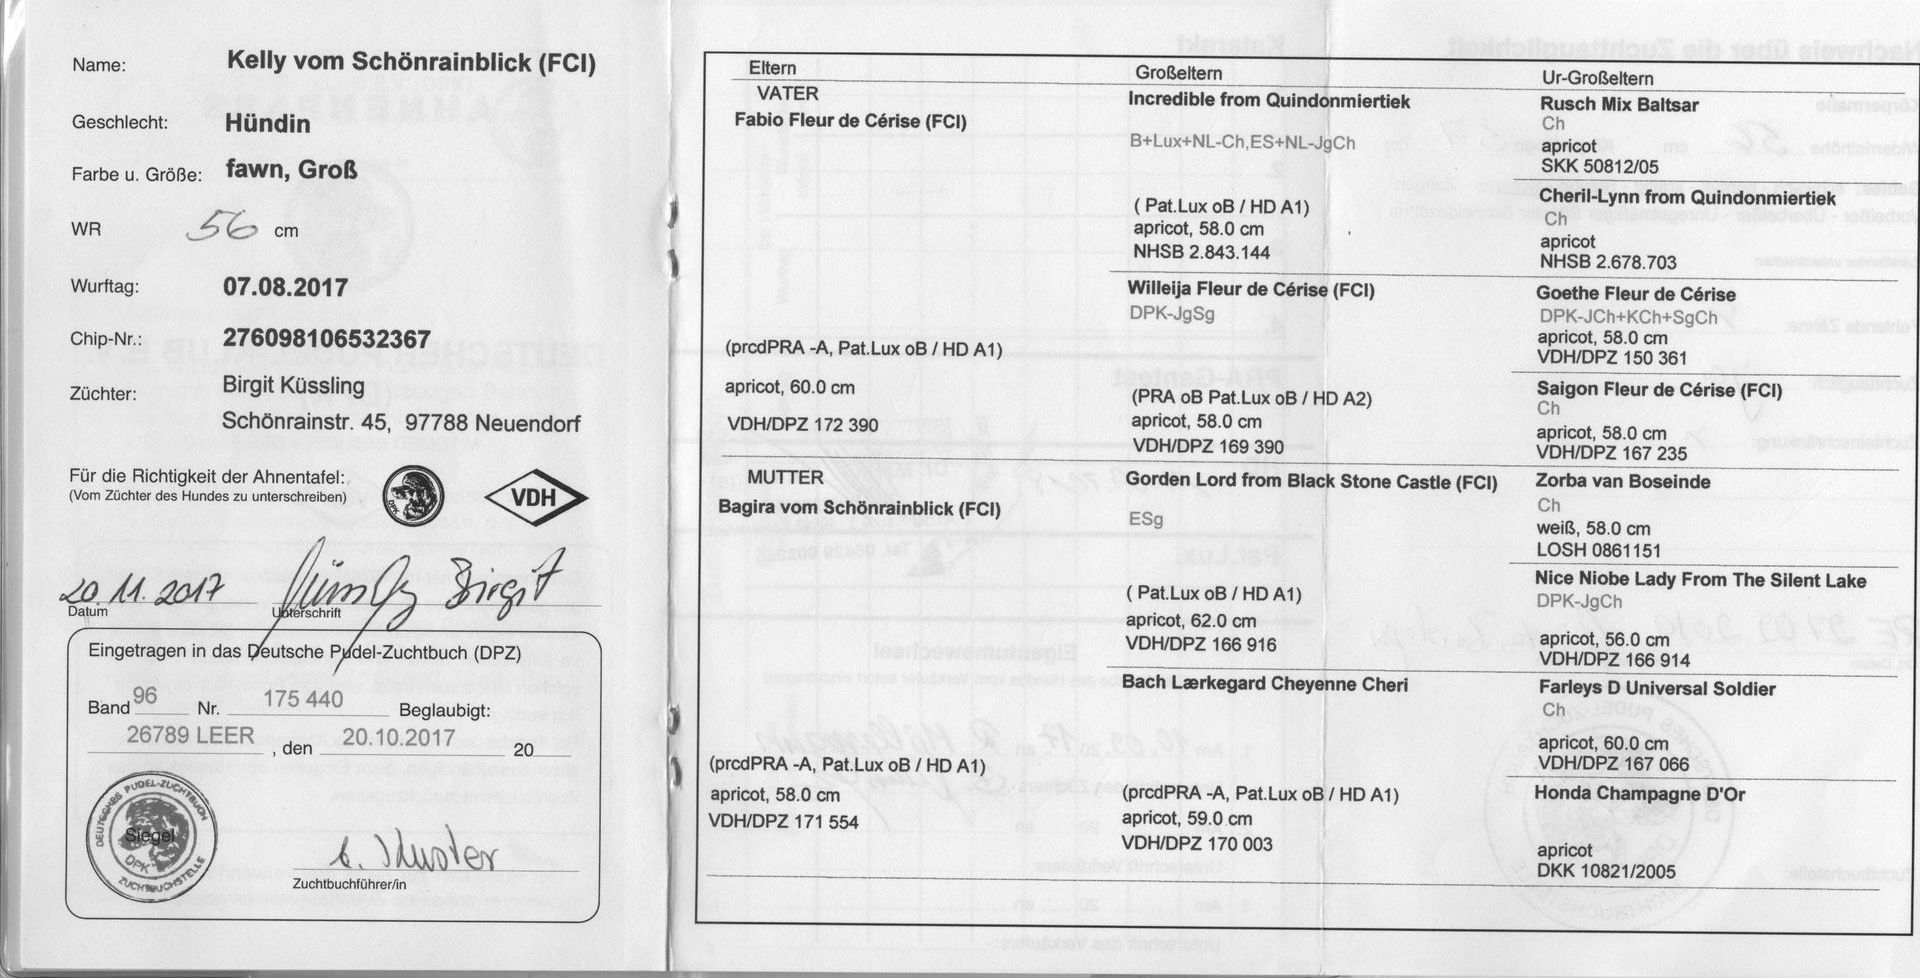 Name: Kelly vom Schönrainblick (FCI)
Geschlecht: Hündin
Farbe u. Größe: fawn, Groß
WR 56 cm
Wurftag: 07.08.2017
Chip-Nr.: 276098106532367
Züchter: Birgit Küssling
Schönrainstr. 45, 97788 Neuendorf
Für die Richtigkeit der Ahnentafel:
(Vom Züchter des Hundes zu unterschreiben)
DPK
VDH
20.11.2017 Birgit
Datum Unterschrift
Eingetragen in das Deutsche Pudel-Zuchtbuch (DPZ)
Band 96 Nr. 175 440 Beglaubigt:
26789 LEER , den 20.10.2017 20
DEUTSCHES PUDEL-ZUCHTBUCH
Siegel
DPK
ZUCHTBUCHSTELLE
Zuchtbuchführer/in
Eltern
VATER
Fabio Fleur de Cérise (FCI)
(prcdPRA -A, Pat.Lux oB / HD A1)
apricot, 60.0 cm
VDH/DPZ 172 390
MUTTER
Bagira vom Schönrainblick (FCI)
(prcdPRA -A, Pat.Lux oB / HD A1)
apricot, 58.0 cm
VDH/DPZ 171 554
Großeltern
Incredible from Quindonmiertiek
B+Lux+NL-Ch,ES+NL-JgCh
( Pat.Lux oB / HD A1)
apricot, 58.0 cm
NHSB 2.843.144
Willeija Fleur de Cérise (FCI)
DPK-JgSg
(PRA oB Pat.Lux oB / HD A2)
apricot, 58.0 cm
VDH/DPZ 169 390
Gorden Lord from Black Stone Castle (FCI)
ESg
( Pat.Lux oB / HD A1)
apricot, 62.0 cm
VDH/DPZ 166 916
Bach Lærkegard Cheyenne Cheri
(prcdPRA -A, Pat.Lux oB / HD A1)
apricot, 59.0 cm
VDH/DPZ 170 003
Ur-Großeltern
Rusch Mix Baltsar
Ch
apricot
SKK 50812/05
Cheril-Lynn from Quindonmiertiek
Ch
apricot
NHSB 2.678.703
Goethe Fleur de Cérise
DPK-JCh+KCh+SgCh
apricot, 58.0 cm
VDH/DPZ 150 361
Saigon Fleur de Cérise (FCI)
Ch
apricot, 58.0 cm
VDH/DPZ 167 235
Zorba van Boseinde
Ch
weiß, 58.0 cm
LOSH 0861151
Nice Niobe Lady From The Silent Lake
DPK-JgCh
apricot, 56.0 cm
VDH/DPZ 166 914
Farleys D Universal Soldier
Ch
apricot, 60.0 cm
VDH/DPZ 167 066
Honda Champagne D'Or
apricot
DKK 10821/2005